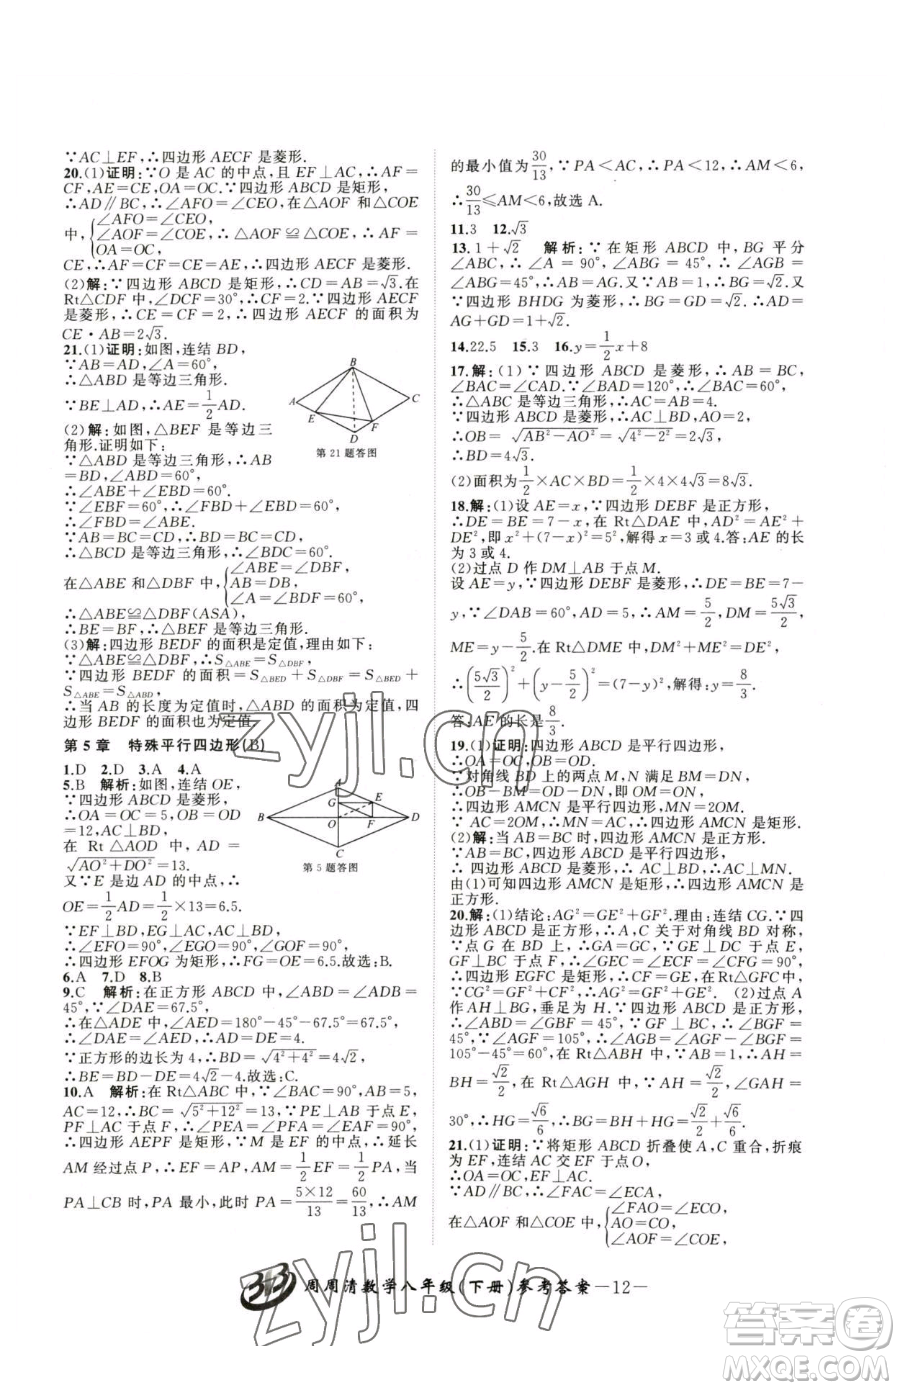 ∵AC⊥EF,∴四边形 AECF 是菱形.
20.(1)证明:∵O 是 AC 的中点,且 EF⊥AC,∴AF=
CF,AE=CE,OA=OC.∵四边形 ABCD 是矩形,
∴AD∥BC,∴∠AFO=∠CEO,在△AOF 和△COE
中,{∠AFO=∠CEO, ∠AOF=∠COE, OA=OC, ∴△AOF≌△COE(AAS),∴AF=
CE,∴AF=CF=CE=AE,∴四边形 AECF 是菱形.
(2)解:∵四边形 ABCD 是矩形,∴CD=AB=√3.在
Rt△CDF 中,∠DCF=30°,∴CF=2.∵四边形 AECF
是菱形,∴CE=CF=2,∴四边形 AECF 的面积为
CE·AB=2√3.
21.(1)证明:如图,连结 BD,
∵AB=AD,∠A=60°,
∴△ABD 是等边三角形.
∵BE⊥AD,∴AE=1/2 AD.
(2)解:如图,△BEF 是等边三
角形.证明如下:
∵△ABD 是等边三角形,∴AB
=BD,∠ABD=60°,
∴∠ABE+∠EBD=60°.
∵∠EBF=60°,∴∠FBD+∠EBD=60°,
∴∠FBD=∠ABE.
∵AB=BC=CD,∴BD=BC=CD,
∴△BCD 是等边三角形,∴∠BDC=60°.
在△ABE 和△DBF 中,{∠ABE=∠DBF, AB=BD, ∠A=∠BDF=60°,
∴△ABE≌△DBF(ASA),
∴BE=BF,∴△BEF 是等边三角形.
(3)解:四边形 BEDF 的面积是定值,理由如下:
∵△ABE≌△DBF,∴S△ABE=S△DBF.
∵四边形 BEDF 的面积=S△BED+S△DBF=S△BED+
S△ABE=S△ABD,
∴当 AB 的长度为定值时,△ABD 的面积为定值,四
边形 BEDF 的面积也为定值.
A
B
C
D
E
F
第 21 题答图
第 5 章 特殊平行四边形(B)
1.D 2.D 3.A 4.A
5.B 解析:如图,连结 OE,
∵四边形 ABCD 是菱形,
∴OA=OC=5,OB=OD
=12,AC⊥BD,
在 Rt△AOD 中,AD=
√(AO²+DO²)=13.
又∵E 是边 AD 的中点,∴
OE=1/2 AD=1/2×13=6.5.
∵EF⊥BD,EG⊥AC,AC⊥BD,
∴∠EFO=90°,∠EGO=90°,∠GOF=90°,
∴四边形 EFOG 为矩形,∴FG=OE=6.5.故选:B.
A
B
C
D
E
F
G
O
第 5 题答图
6.A 7.D 8.B
9.C 解析:在正方形 ABCD 中,∠ABD=∠ADB=
45°,∵∠DAE=67.5°,
∴在△ADE 中,∠AED=180°-45°-67.5°=67.5°,
∴∠DAE=∠AED,∴AD=DE=4.
∵正方形的边长为 4,∴BD=√(4²+4²)=4√2,
∴BE=BD-DE=4√2-4.故选:C.
10.A 解析:在 Rt△ABC 中,∵∠BAC=90°,AB=5,
AC=12,∴BC=√(5²+12²)=13.∵PE⊥AB,
PF⊥AC 于点 F,∴∠PEA=∠PFA=∠EAF=90°,
∴四边形 AEPF 是矩形.∵M 是 EF 的中点,∴延长
AM 经过点 P,∴AM=1/2 EF=1/2 AP,∴AM=1/2 AP,当
PA⊥CB 时,PA 最小,此时 PA=5×12/13=60/13,∴AM
的最小值为30/13.∵PA<AC,∴PA<12,∴AM<6,
∴30/13≤AM<6,故选 A.
11.3 12.√3
13.1+√2 解析:∵在矩形 ABCD 中,BG 平分
∠ABC,∴∠A=90°,∠ABG=45°,∴∠AGB=
∠ABG=45°,∴AB=AG.又∵AB=1,∴BG=√2.又∵四
边形 BHDG 为菱形,∴BG=GD=√2,∴AD=
AG+GD=1+√2.
14.22.5 15.3 16.y=1/2 x+8
17.解:(1)∵四边形 ABCD 是菱形,∴AB=BC,
∠BAC=∠CAD.∵∠BAD=120°,∴∠BAC=60°,
∴△ABC 是等边三角形,∴AC=4.
∵四边形 ABCD 是菱形,∴AC⊥BD,AO=2,
∴OB=√(AB²-AO²)=√(4²-2²)=2√3,
∴BD=4√3.
(2)面积为1/2×AC×BD=1/2×4×4√3=8√3.
18.解:(1)设 AE=x,∵四边形 DEBF 是正方形,
∴DE=BE=7-x,在 Rt△DAE 中,AD²=AE²+
DE²,即 x²+(7-x)²=5²,解得:x=3 或 4.答:AE 的长
为 3 或 4.
(2)过点 D 作 DM⊥AB 于点 M.
设 AE=y,∵四边形 DEBF 是菱形,∴DE=BE=7-
y,∵∠DAB=60°,AD=5,∴AM=5/2,DM=5√3/2,
ME=y-5/2.在 Rt△DME 中,DM²+ME²=DE²,
∴(5√3/2)²+(y-5/2)²=(7-y)²,解得:y=8/3.
答:AE 的长为8/3.
19.(1)证明:∵四边形 ABCD 是平行四边形,
∴OA=OC,OB=OD.
∵对角线 BD 上的两点 M,N 满足 BM=DN,
∴OB-BM=OD-DN,即 OM=ON,
∴四边形 AMCN 是平行四边形,∴MN=2OM.
∵AC=2OM,∴MN=AC,∴四边形 AMCN 是矩形.
(2)解:当 AB=BC 时,四边形 AMCN 是正方形.
∵AB=BC,四边形 ABCD 是平行四边形,
∴四边形 ABCD 是菱形,∴AC⊥BD.
由(1)可知四边形 AMCN 是矩形,∴四边形 AMCN
是正方形.
20.解:(1)结论:AG²=GE²+GF².理由:连结 CG.∵四
边形 ABCD 是正方形,∴A,C 关于对角线 BD 对称,
∵点 G 在 BD 上,∴GA=GC.∵GE⊥DC 于点 E,
GF⊥BC 于点 F,∴∠GEC=∠ECF=∠CFG=90°,
∴四边形 EGFC 是矩形,∴CF=GE.在 Rt△GFC 中,
∵CG²=GF²+CF²,∴AG²=GF²+GE². (2)过点 A
作 AH⊥BG,垂足为 H.∵四边形 ABCD 是正方形,
∴∠ABD=∠GBF=45°.∵GF⊥BC,∴∠BGF=
45°,∵∠AGF=105°,∴∠AGB=∠AGF-∠BGF=
105°-45°=60°.在 Rt△ABH 中,∵AB=1,∴AH=
BH=√2/2.在 Rt△AGH 中,∵AH=√2/2,∠GAH=
30°,∴HG=√6/6,∴BG=BH+HG=√2/2+√6/6.
21.(1)证明:∵将矩形 ABCD 折叠使 A,C 重合,折痕
为 EF,连结 AC 交 EF 于点 O,
∵AD∥BC,∴∠FAC=∠ECA,
在△AOF 和△COE 中,{∠FAO=∠ECO, AO=CO, ∠AOF=∠COE,
周周清数学八年级(下册)参考答案—12—
zyjl.cn
zyjl.cn
答案圈
MXQE.COM